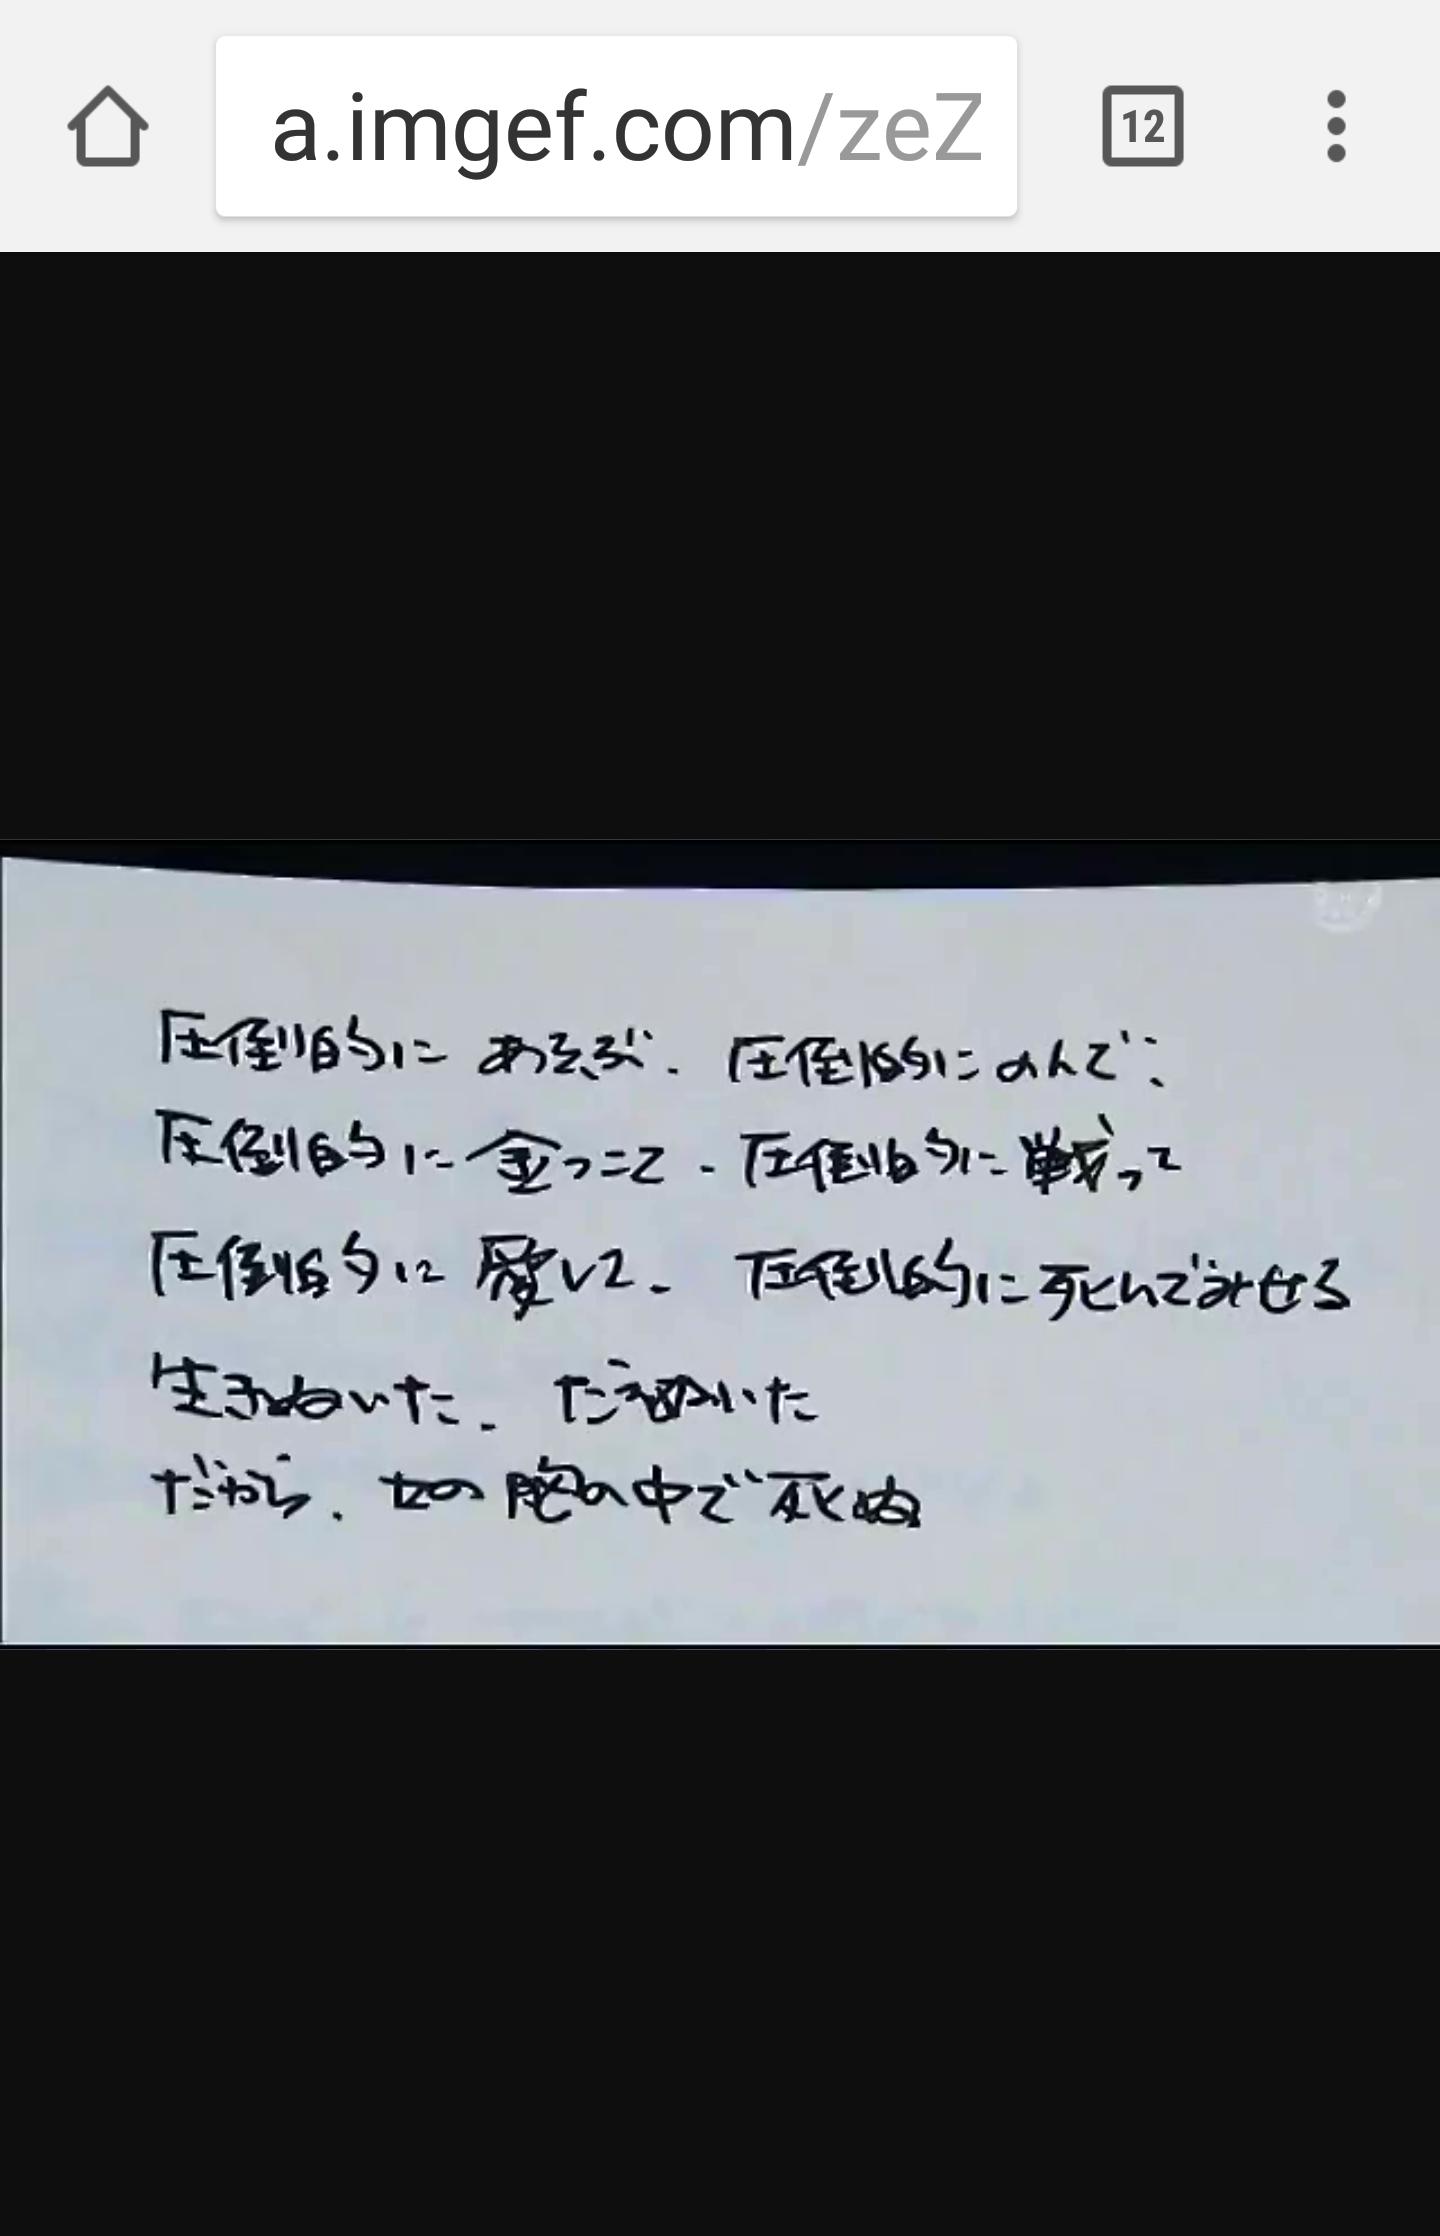 a.imgef.com/zeZ
12
圧倒的に あそぶ、圧倒的にのんで、
圧倒的に金つこて、圧倒的に戦って
圧倒的に愛して、圧倒的に死んでみせる
生きぬいた、たえぬいた
だから、女の胸の中で死ぬ